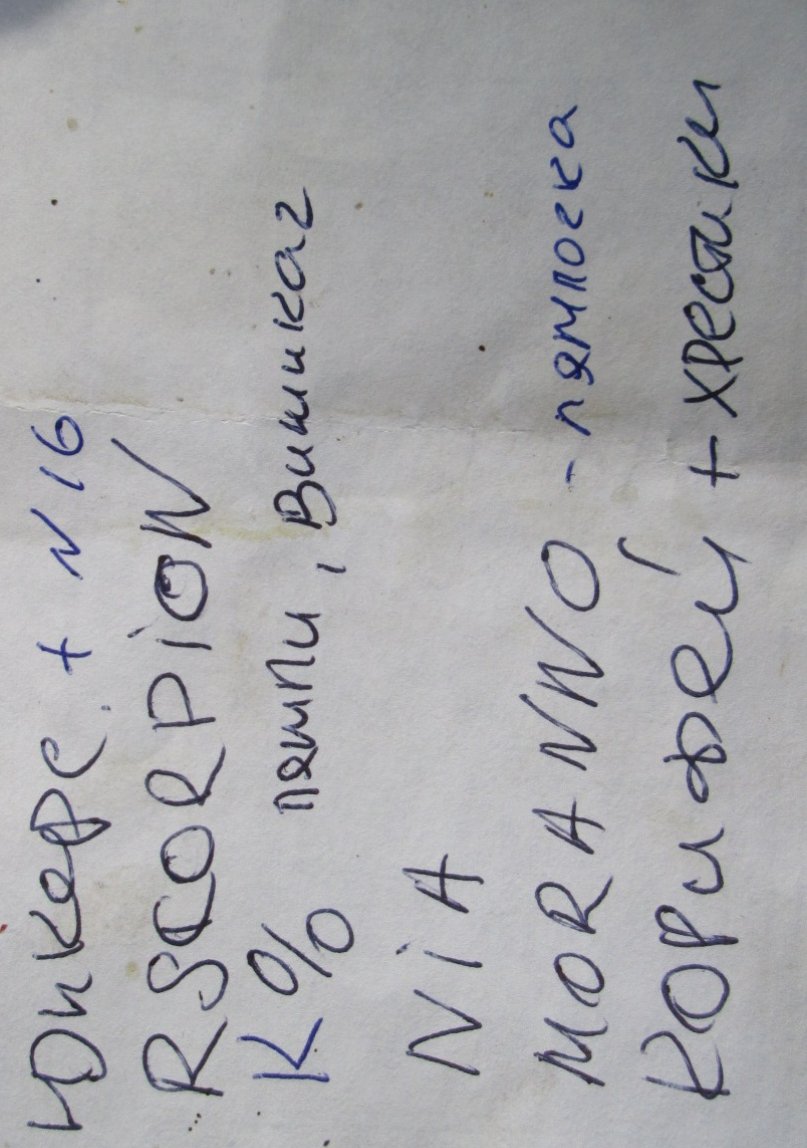 Юнкерс. + N 16
RSCORPiON
К % лямпи, Вимикаг
NiA
MORANNO - лямпочка
КОРИФЕЙ + хрестики